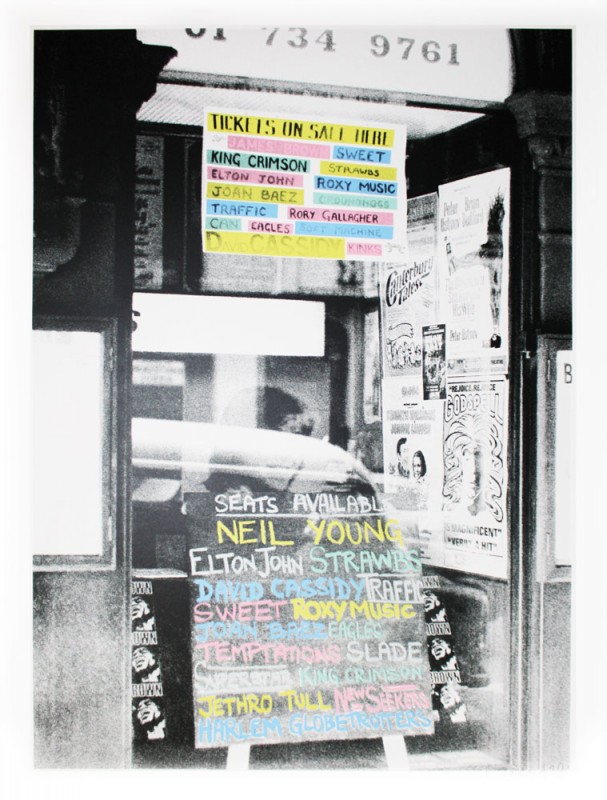 01 734 9761
TICKETS ON SALE HERE
JAMES BROWN SWEET
KING CRIMSON STRAWBS
ELTON JOHN ROXY MUSIC
JOAN BAEZ
TRAFFIC RORY GALLAGHER
CAN EAGLES SOFT MACHINE
DAVID CASSIDY KINKS
Canterbury Tales
"REJOICE REJOICE
GODSPELL
MAGNIFICENT"
B
SEATS AVAILABLE
NEIL YOUNG
ELTON JOHN STRAWBS
DAVID CASSIDY TRAFFIC
SWEET ROXY MUSIC
JOAN BAEZ EAGLES
TEMPTATIONS SLADE
KING CRIMSON
JETHRO TULL NEW SEEKERS
HARLEM GLOBETROTTERS
OWN
OWN
BROWN